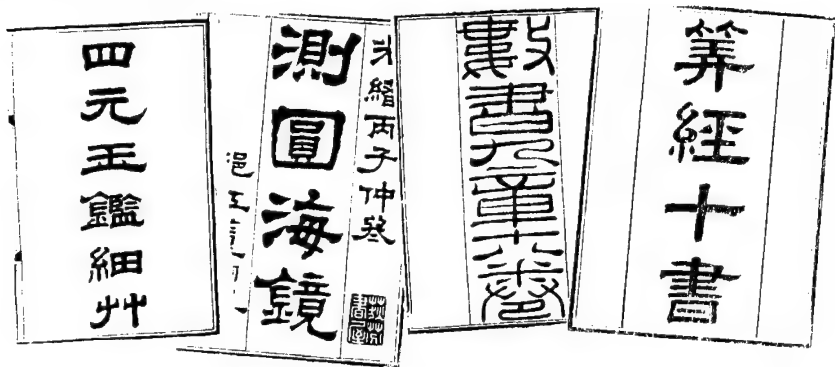 筭經十書
數書九章十八卷
光緒丙子仲
測圓海鏡
四元玉鑑細艸